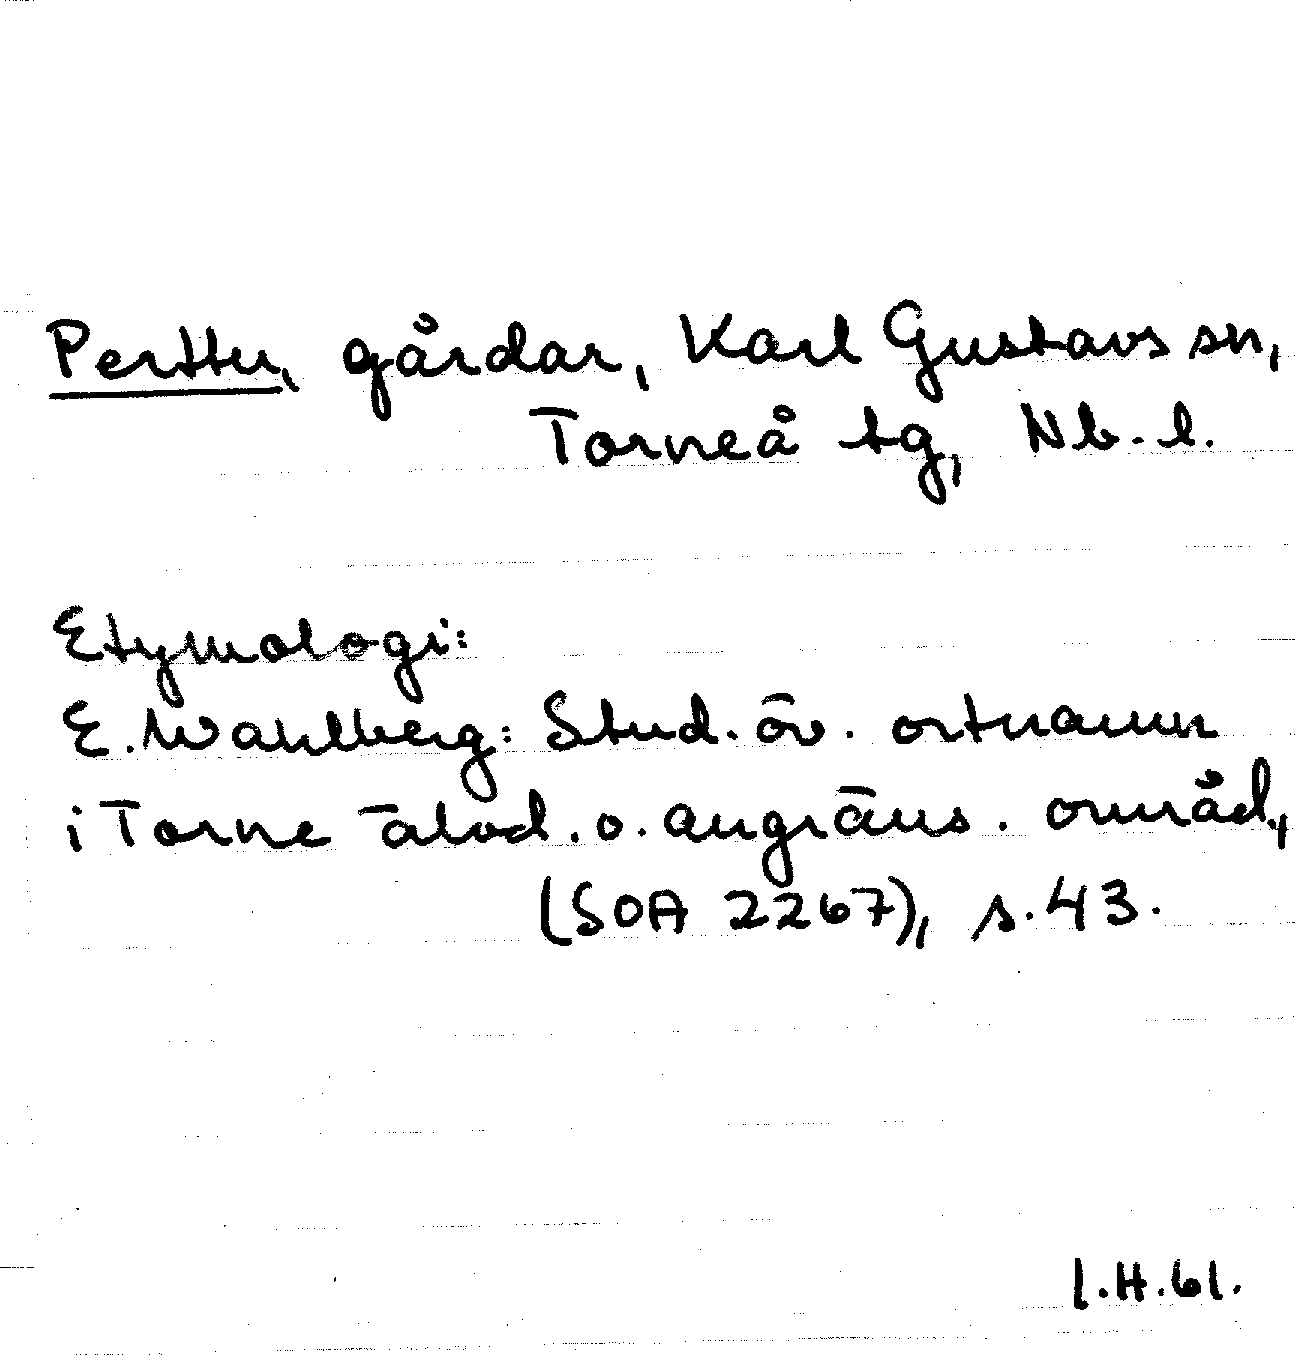 Perttu, gårdar, Karl Gustavs sn,
Torneå tg, Nb. l.
Etymologi:
E. Wahlberg: Stud. öv. ortnamn
i Torne älvd. o. angräns. områd.,
(SOA 2267), s. 43.
I.H.61.